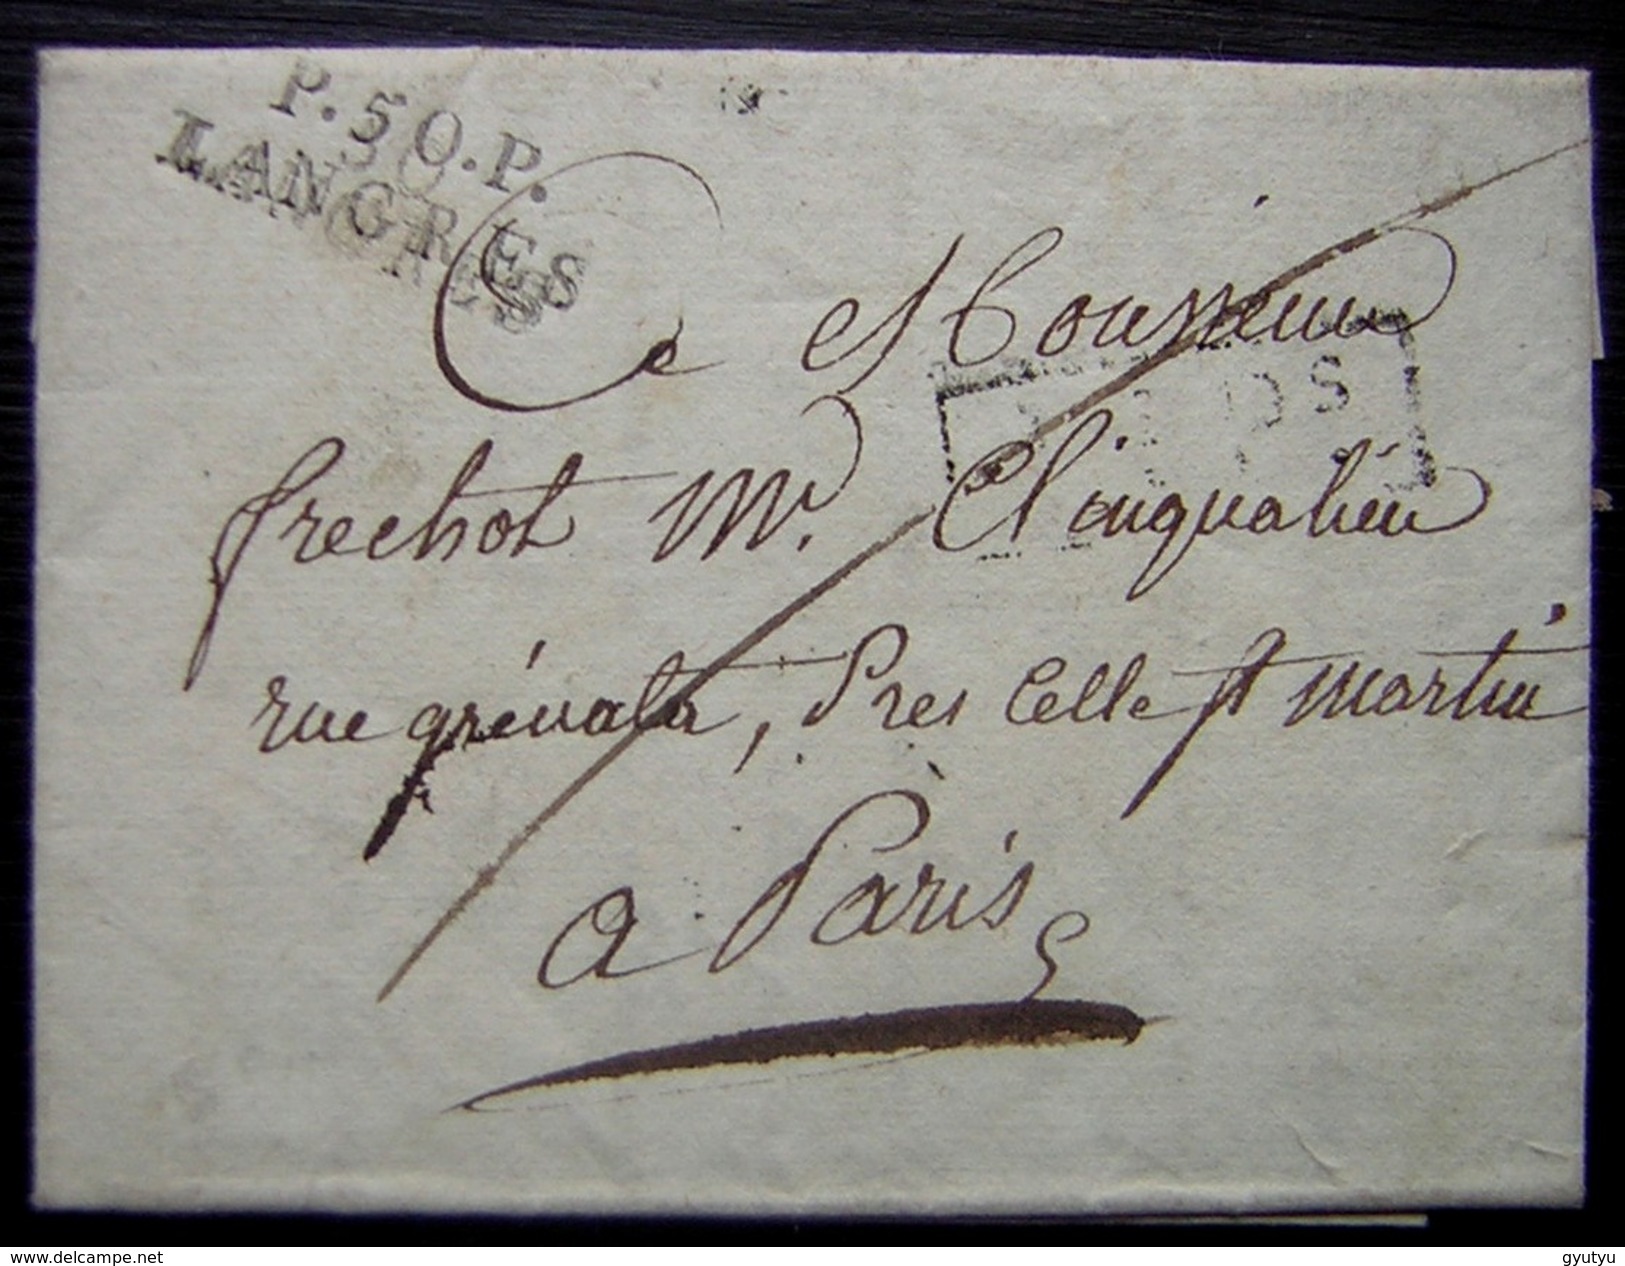 P.50.P.
LANGRES
A Monsieur
frechot Md. Clinqualieu
rue grénata, Pres Celle st martin
a Paris
delcampe.net
gyutyu